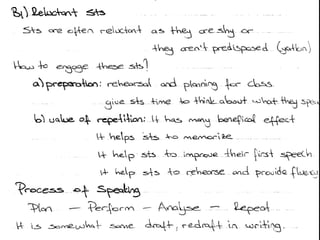 B1) Reluctant sts
Sts are often reluctant as they are shy or
they aren't predisposed (yatkın)
How to engage these sts?
a) preparation: rehearsal and planning for class.
give sts time to think about what they
b) value of repetition: It has many benefical effect
It helps sts to memorize
It help sts to improve their first speech
it help sts to rehearse and provide
Process of Speaking
Plan — Perform — Analyse — Repeat
It is somewhat same draft, redraft in writing.